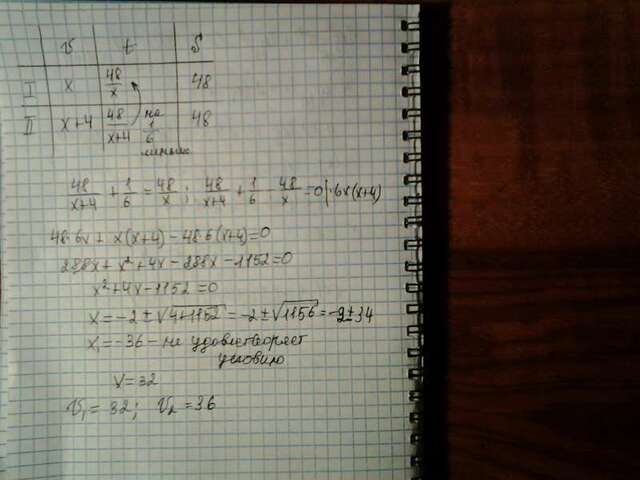 v t S
I x 48/x 48
II x+4 48/(x+4) на 1/6 меньше 48
48/(x+4) + 1/6 = 48/x ; 48/(x+4) + 1/6 - 48/x = 0 | · 6x(x+4)
48·6x + x(x+4) - 48·6(x+4) = 0
288x + x² + 4x - 288x - 1152 = 0
x² + 4x - 1152 = 0
x = -2 ± √(4+1152) = -2 ± √1156 = -2 ± 34
x₁ = -36 - не удовлетворяет
условию
x = 32
v₁ = 32; v₂ = 36